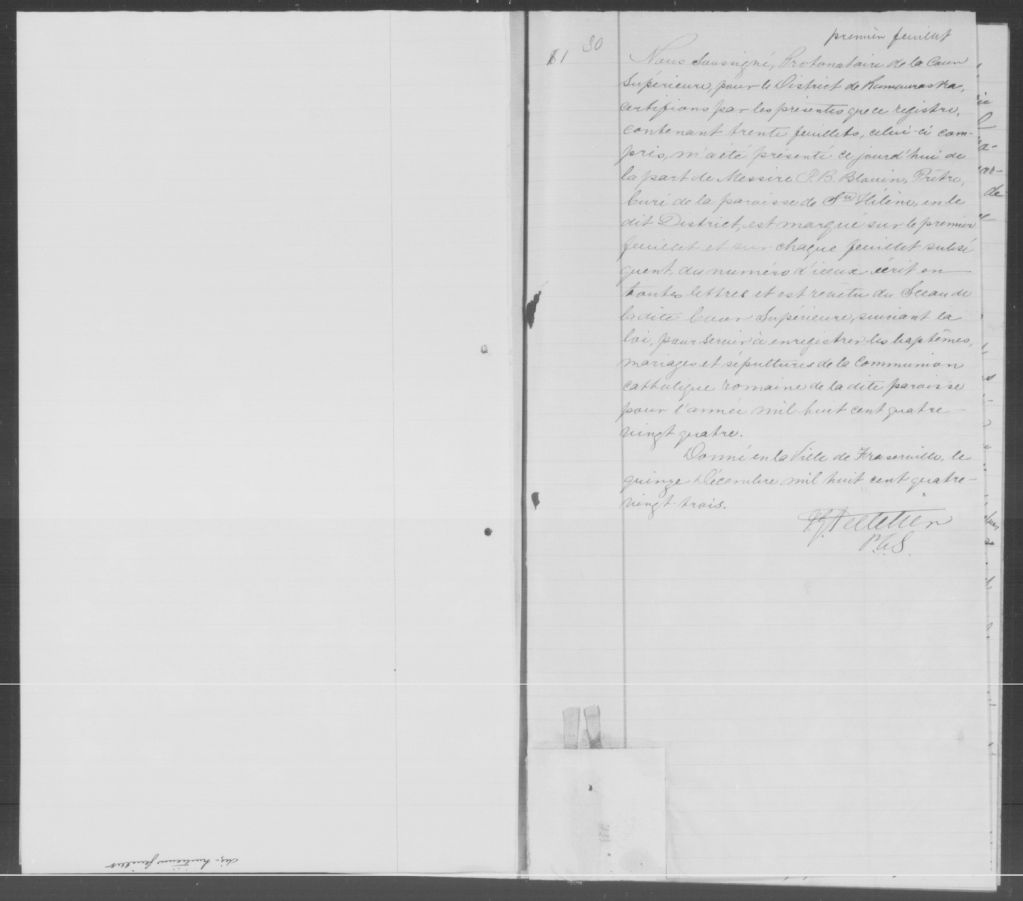 premier feuillet
81 30
Nous Soussigné, Protonotaire de la Cour
Supérieure, pour le District de Kamouraska,
certifions par les présentes que ce registre,
contenant trente feuillets, celui-ci com-
pris, m'a été présenté ce jourd'hui de
la part de Messire P. B. Blouin, Prêtre,
Curé de la paroisse de Ste Hélène, en le
dit District, est marqué sur le premier
feuillet et sur chaque feuillet subsé
quent du numéro d'iceux écrit en
toutes lettres et est revêtu du Sceau de
la dite Cour Supérieure, suivant la
loi, pour servir à enregistrer les baptêmes,
mariages et sépultures de la Communion
catholique romaine de la dite paroisse
pour l'année mil huit cent quatre
vingt quatre.
Donné en la Ville de Fraserville, le
quinze Décembre mil huit cent quatre-
vingt-trois.
Pelletier
P.C.S.
feuillet